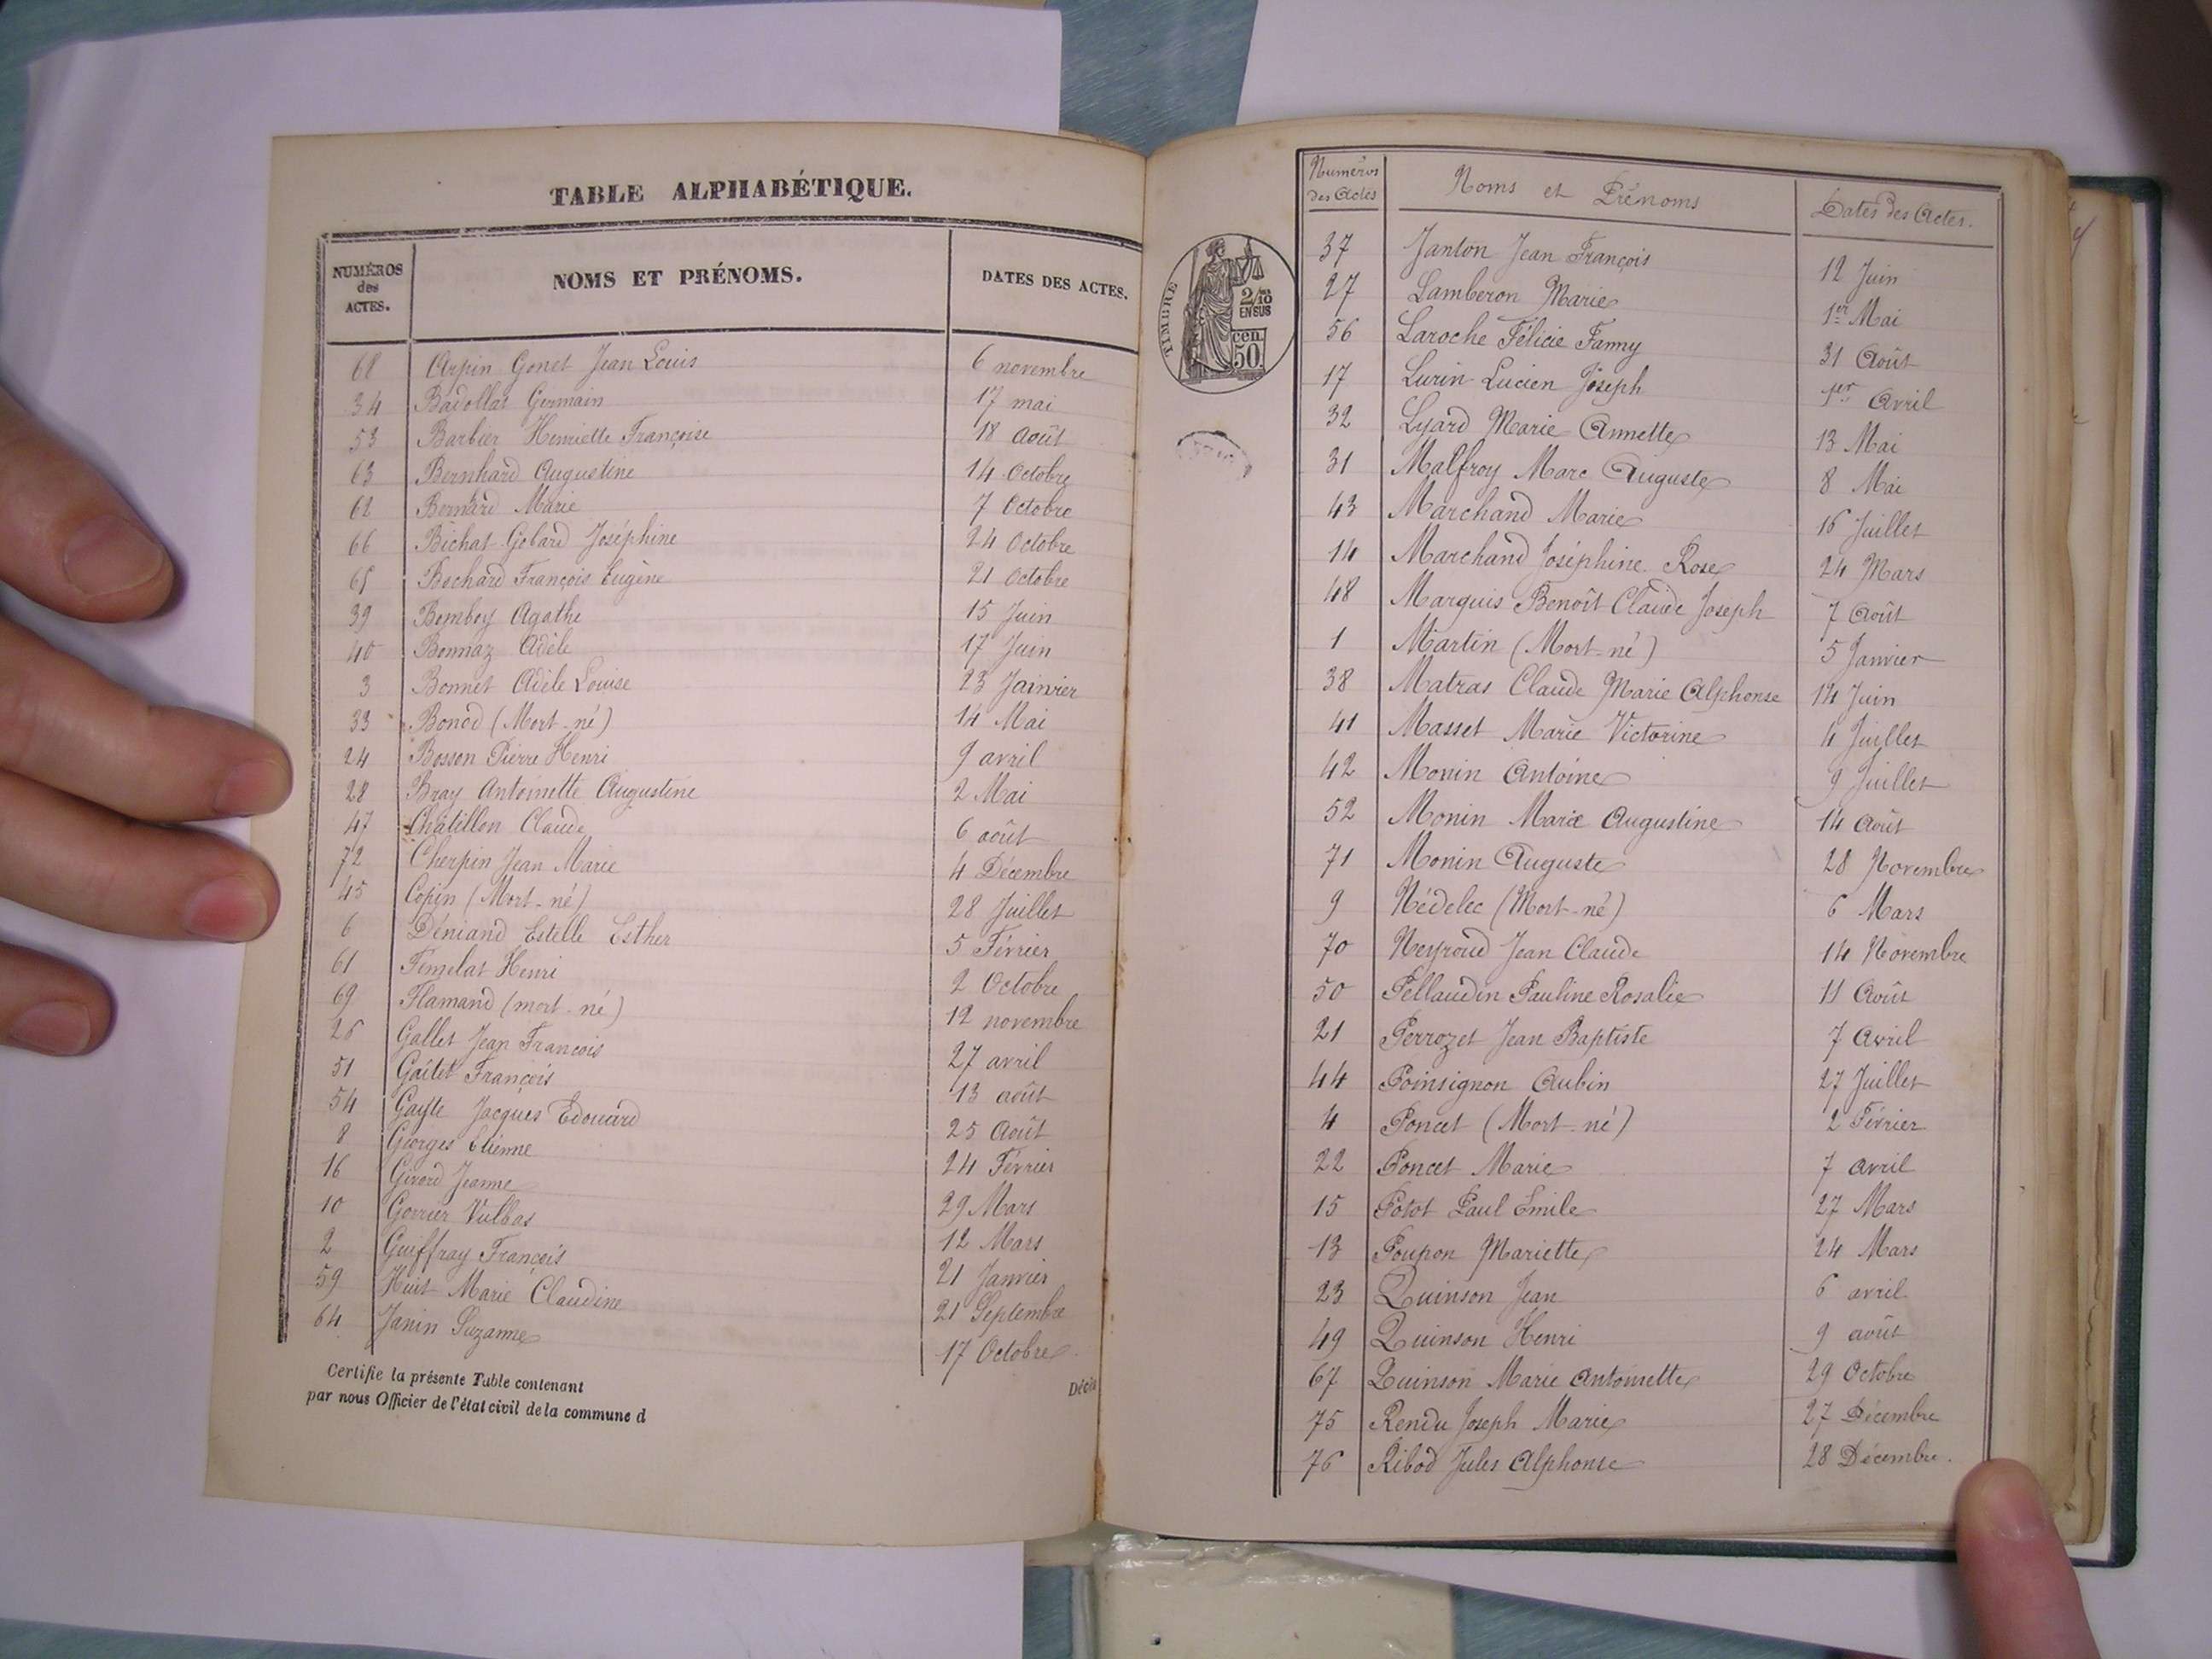 TABLE ALPHABÉTIQUE.
NUMÉROS des ACTES. NOMS ET PRÉNOMS. DATES DES ACTES.
68 Arpin Gonet Jean Louis 6 novembre
34 Badollat Germain 17 mai
53 Barbier Henriette Françoise 18 Août
63 Bernhard Augustine 14 Octobre
62 Bernard Marie 7 Octobre
66 Bichat-Gobard Joséphine 24 Octobre
65 Bochard François Eugène 21 Octobre
39 Bomboy Agathe 15 Juin
40 Bonnaz Adèle 17 Juin
3 Bonnet Adèle Louise 23 Jainvier
33 Bonod (Mort-né) 14 Mai
24 Bosson Pierre Henri 9 avril
28 Bray Antoinette Augustine 2 Mai
47 Châtillon Claude 6 août
72 Cherpin Jean Marie 4 Décembre
45 Copin (Mort-né) 28 Juillet
6 Déniand Estelle Esther 5 Février
61 Femelat Henri 2 Octobre
69 Flamand (mort-né) 12 novembre
26 Gallet Jean François 27 avril
51 Gaîtet François 13 août
54 Gayte Jacques Edouard 25 Août
8 Georges Etienne 24 Février
16 Girord Jeanne 29 Mars
10 Gorrier Vulbas 12 Mars
2 Guiffray François 21 Janvier
59 Huit Marie Claudine 21 Septembre
64 Janin Suzanne 17 Octobre
Certifie la présente Table contenant Décès
par nous Officier de l'état civil de la commune d
TIMBRE
2/10 EN SUS
50 cen.
Numéros des Actes Noms et Prénoms Dates des Actes.
37 Janton Jean François 12 Juin
27 Lamberon Marie 1er Mai
56 Laroche Félicie Fanny 31 Août
17 Lurin Lucien Joseph 1er Avril
32 Lyard Marie Annette 13 Mai
31 Malfroy Marc Auguste 8 Mai
43 Marchand Marie 16 Juillet
14 Marchand Joséphine Rose 24 Mars
48 Marquis Benoît Claude Joseph 7 Août
1 Martin (Mort-né) 5 Janvier
38 Matras Claude Marie Alphonse 14 Juin
41 Masset Marie Victorine 4 Juillet
42 Monin Antoine 9 Juillet
52 Monin Marie Augustine 14 Août
71 Monin Auguste 28 Novembre
9 Nédelec (Mort-né) 6 Mars
70 Neyroud Jean Claude 14 Novembre
50 Pellaudin Pauline Rosalie 11 Août
21 Perrozet Jean Baptiste 7 Avril
44 Poinsignon Aubin 27 Juillet
4 Poncet (Mort-né) 2 Février
22 Poncet Marie 7 avril
15 Potot Paul Emile 27 Mars
13 Poupon Mariette 24 Mars
23 Quinson Jean 6 avril
49 Quinson Henri 9 août
67 Quinson Marie Antoinette 29 Octobre
75 Rendu Joseph Marie 27 Décembre
76 Ribod Jules Alphonse 28 Décembre.